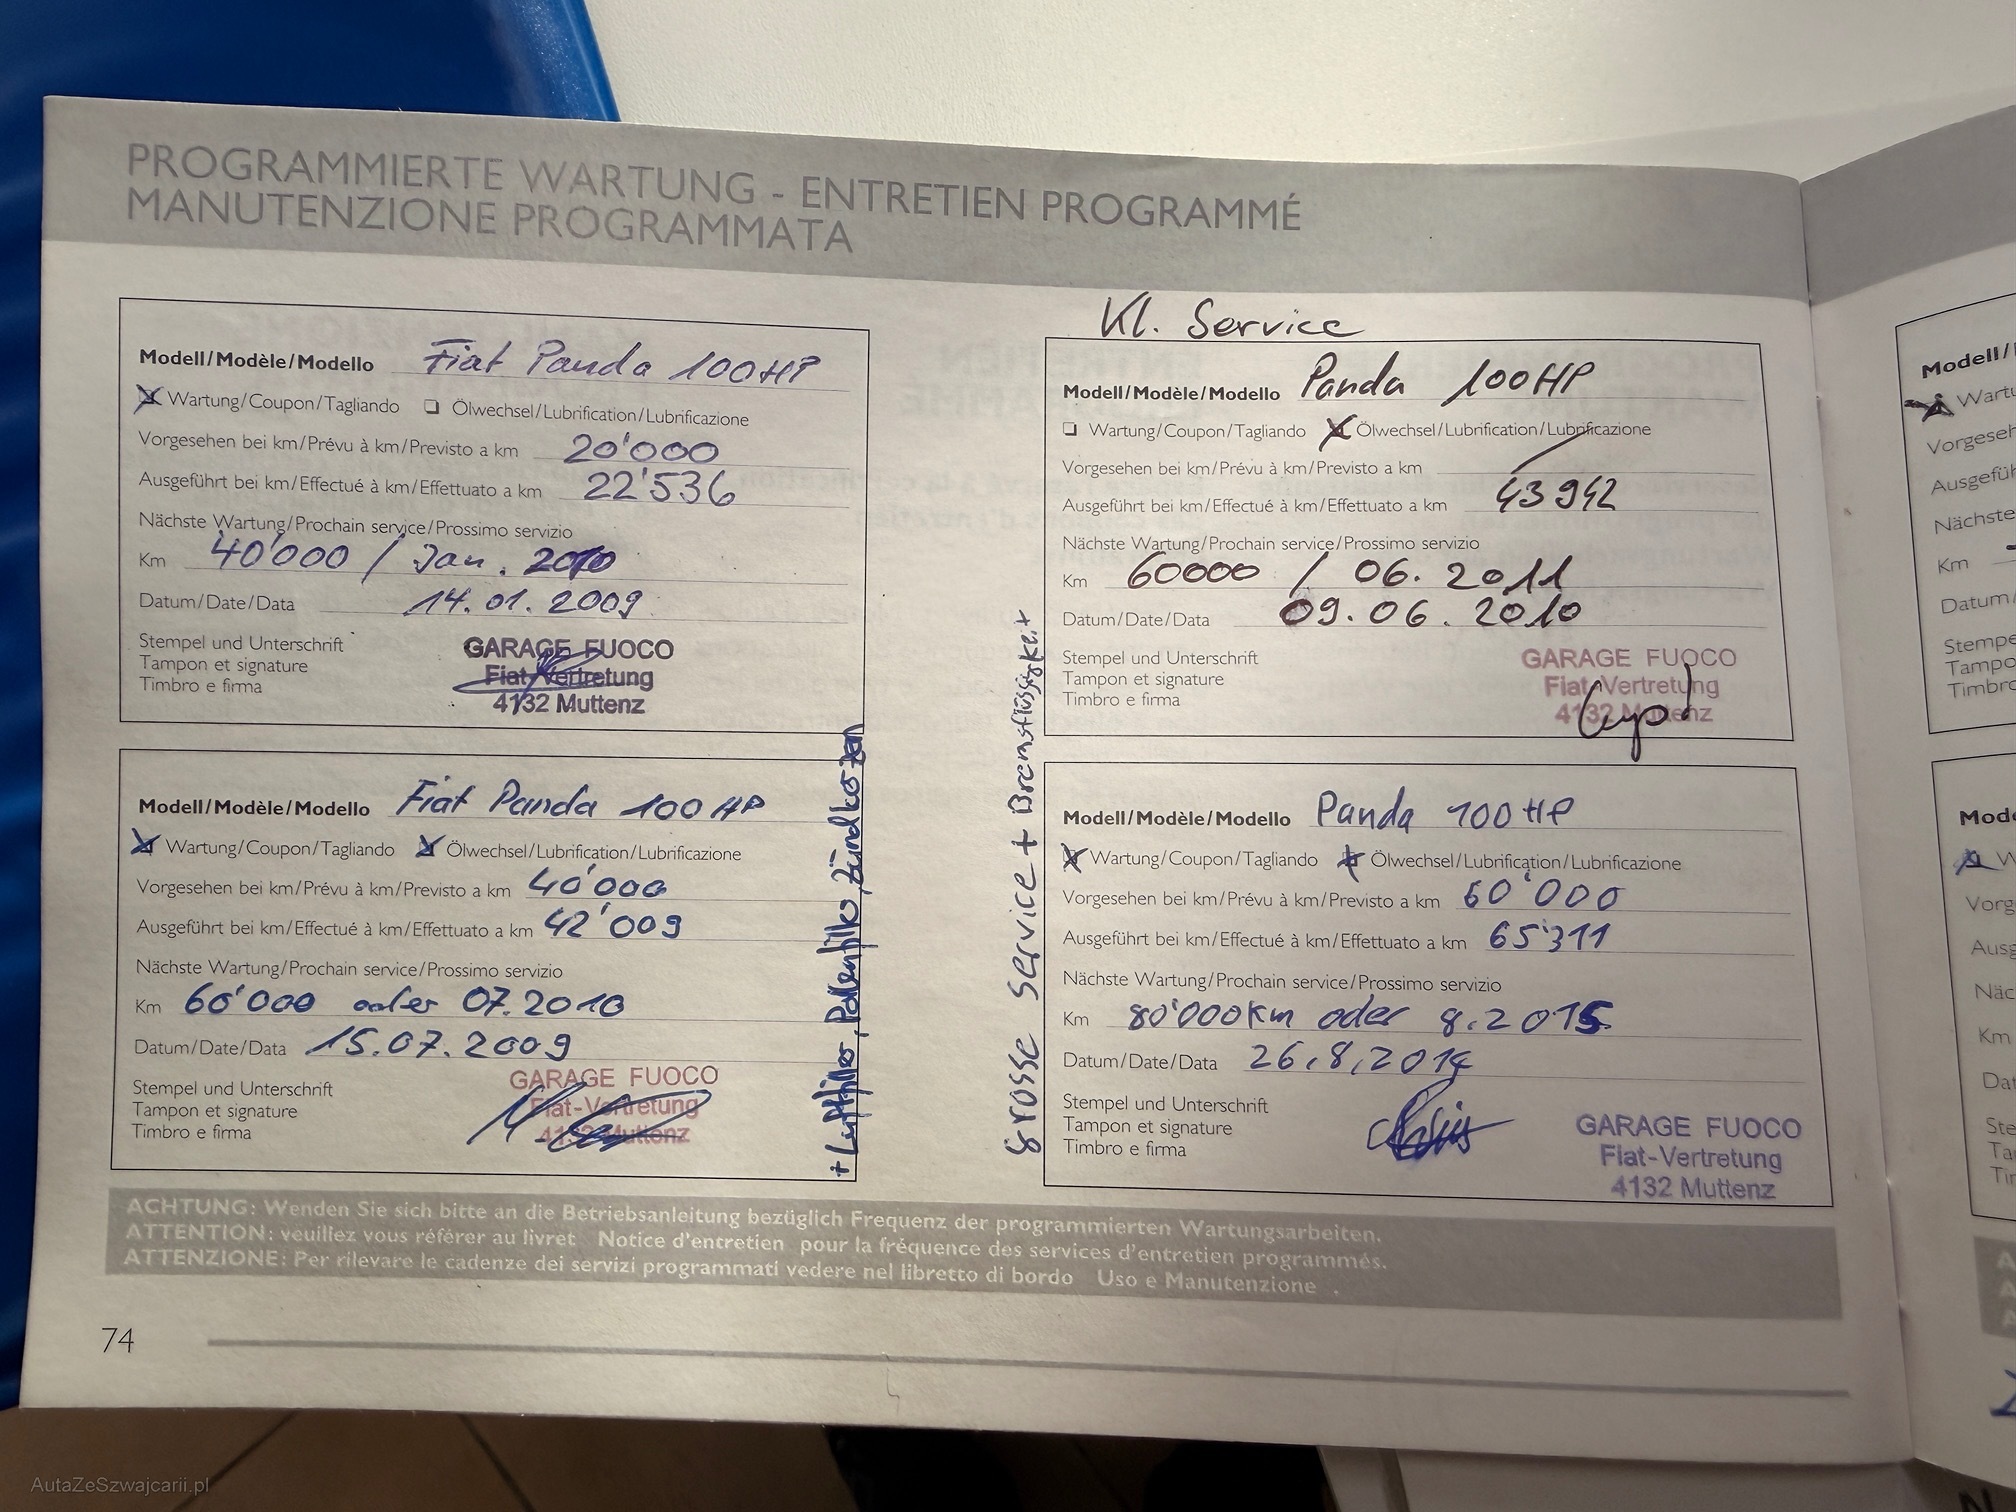 PROGRAMMIERTE WARTUNG - ENTRETIEN PROGRAMMÉ
MANUTENZIONE PROGRAMMATA
Modell/Modèle/Modello Fiat Panda 100HP
Wartung/Coupon/Tagliando Ölwechsel/Lubrification/Lubrificazione
Vorgesehen bei km/Prévu à km/Previsto a km 20'000
Ausgeführt bei km/Effectué à km/Effettuato a km 22'536
Nächste Wartung/Prochain service/Prossimo servizio
Km 40'000 / Jan. 2010
Datum/Date/Data 14.01.2009
Stempel und Unterschrift
Tampon et signature
Timbro e firma
GARAGE FUOCO
Fiat-Vertretung
4132 Muttenz
Modell/Modèle/Modello Fiat Panda 100 HP
Wartung/Coupon/Tagliando Ölwechsel/Lubrification/Lubrificazione
Vorgesehen bei km/Prévu à km/Previsto a km 40'000
Ausgeführt bei km/Effectué à km/Effettuato a km 42'009
Nächste Wartung/Prochain service/Prossimo servizio
Km 60'000 oder 07.2010
Datum/Date/Data 15.07.2009
Stempel und Unterschrift
Tampon et signature
Timbro e firma
GARAGE FUOCO
Fiat-Vertretung
4132 Muttenz
+ Luftfilter, Pollenfilter, Zündkerzen
Kl. Service
Modell/Modèle/Modello Panda 100HP
Wartung/Coupon/Tagliando Ölwechsel/Lubrification/Lubrificazione
Vorgesehen bei km/Prévu à km/Previsto a km
Ausgeführt bei km/Effectué à km/Effettuato a km 43942
Nächste Wartung/Prochain service/Prossimo servizio
Km 60000 / 06.2011
Datum/Date/Data 09.06.2010
Stempel und Unterschrift
Tampon et signature
Timbro e firma
GARAGE FUOCO
Fiat-Vertretung
4132 Muttenz
Grosse Service + Bremsflüssigkeit
Modell/Modèle/Modello Panda 100 HP
Wartung/Coupon/Tagliando Ölwechsel/Lubrification/Lubrificazione
Vorgesehen bei km/Prévu à km/Previsto a km 60'000
Ausgeführt bei km/Effectué à km/Effettuato a km 65'311
Nächste Wartung/Prochain service/Prossimo servizio
Km 80'000km oder 8.2015
Datum/Date/Data 26.8.2014
Stempel und Unterschrift
Tampon et signature
Timbro e firma
GARAGE FUOCO
Fiat-Vertretung
4132 Muttenz
ACHTUNG: Wenden Sie sich bitte an die Betriebsanleitung bezüglich Frequenz der programmierten Wartungsarbeiten.
ATTENTION: veuillez vous référer au livret Notice d'entretien pour la fréquence des services d'entretien programmés.
ATTENZIONE: Per rilevare le cadenze dei servizi programmati vedere nel libretto di bordo Uso e Manutenzione .
74
Modell/
Km
Datum/
Tampon
Km
AutaZeSzwajcarii.pl